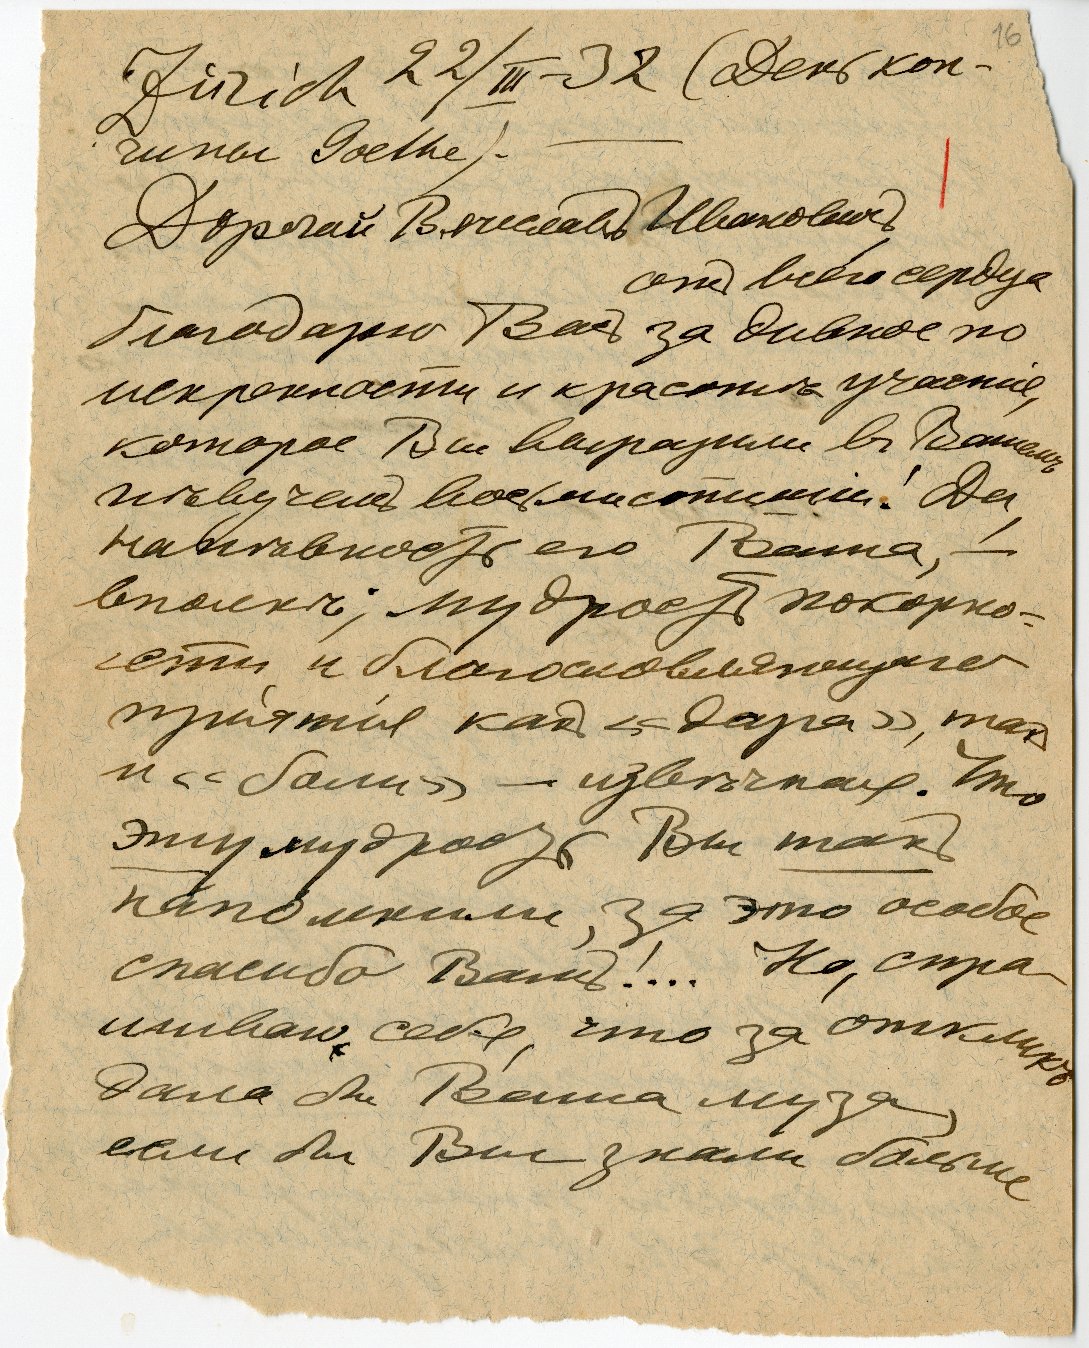 16
Zürich 22/III-32 (День кон-
чины Goethe). —
Дорогой Вячеславъ Ивановичъ
отъ всего сердца
благодарю Васъ за дивное по
искренности и красотѣ участіе,
которое Вы выразили въ Вашемъ
пѣвучемъ восьмистишіи! Да,
напѣвность его Ваша, —
вполнѣ; мудрость покорно-
сти и благословляющаго
пріятія какъ «дара», такъ
и «боли» — извѣчная. Что
эту мудрость Вы такъ
напомнили, за это особое
спасибо Вамъ!... Но, спра-
шиваю себя, что за откликъ
дала бы Ваша муза,
если бы Вы знали больше